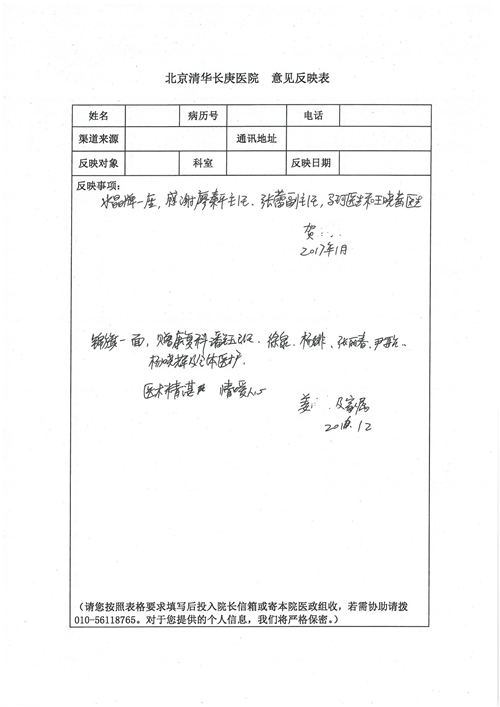 北京清华长庚医院 意见反映表
姓名 病历号 电话
渠道来源 通讯地址
反映对象 科室 反映日期
反映事项：
水晶牌一座，感谢廖泰平主任、张蕾副主任，马珂医生和王晓茜医生
贺
2017年1月
锦旗一面，赠康复科潘钰主任、徐泉、杨娜、张丽春、尹
杨晓辉及全体医护
医术精湛 情暖人心
姜 及家属
2016.12
（请您按照表格要求填写后投入院长信箱或寄本院医政组收，若需协助请拨
010-56118765。对于您提供的个人信息，我们将严格保密。）